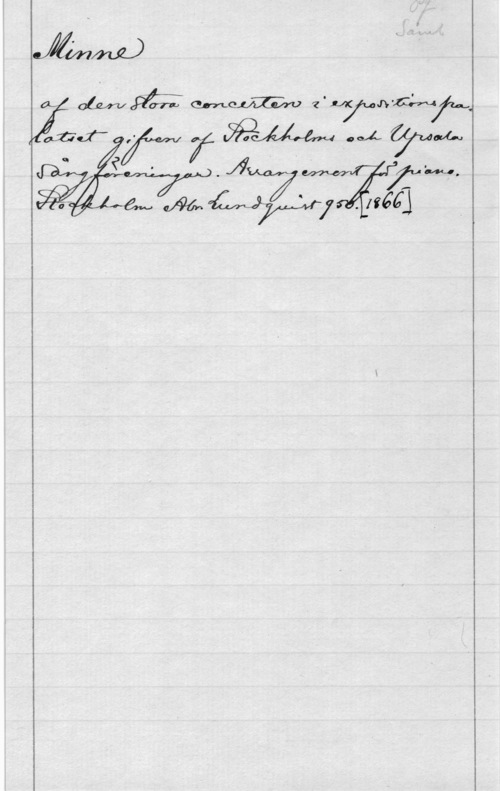 of
Saml
Minne
af den stora concerten i expositionspa-
latset gifven af Stockholms och Upsala
Sångföreningar. Arrangement för piano.
Stockholm Abr. Lundquist 956. [1866]